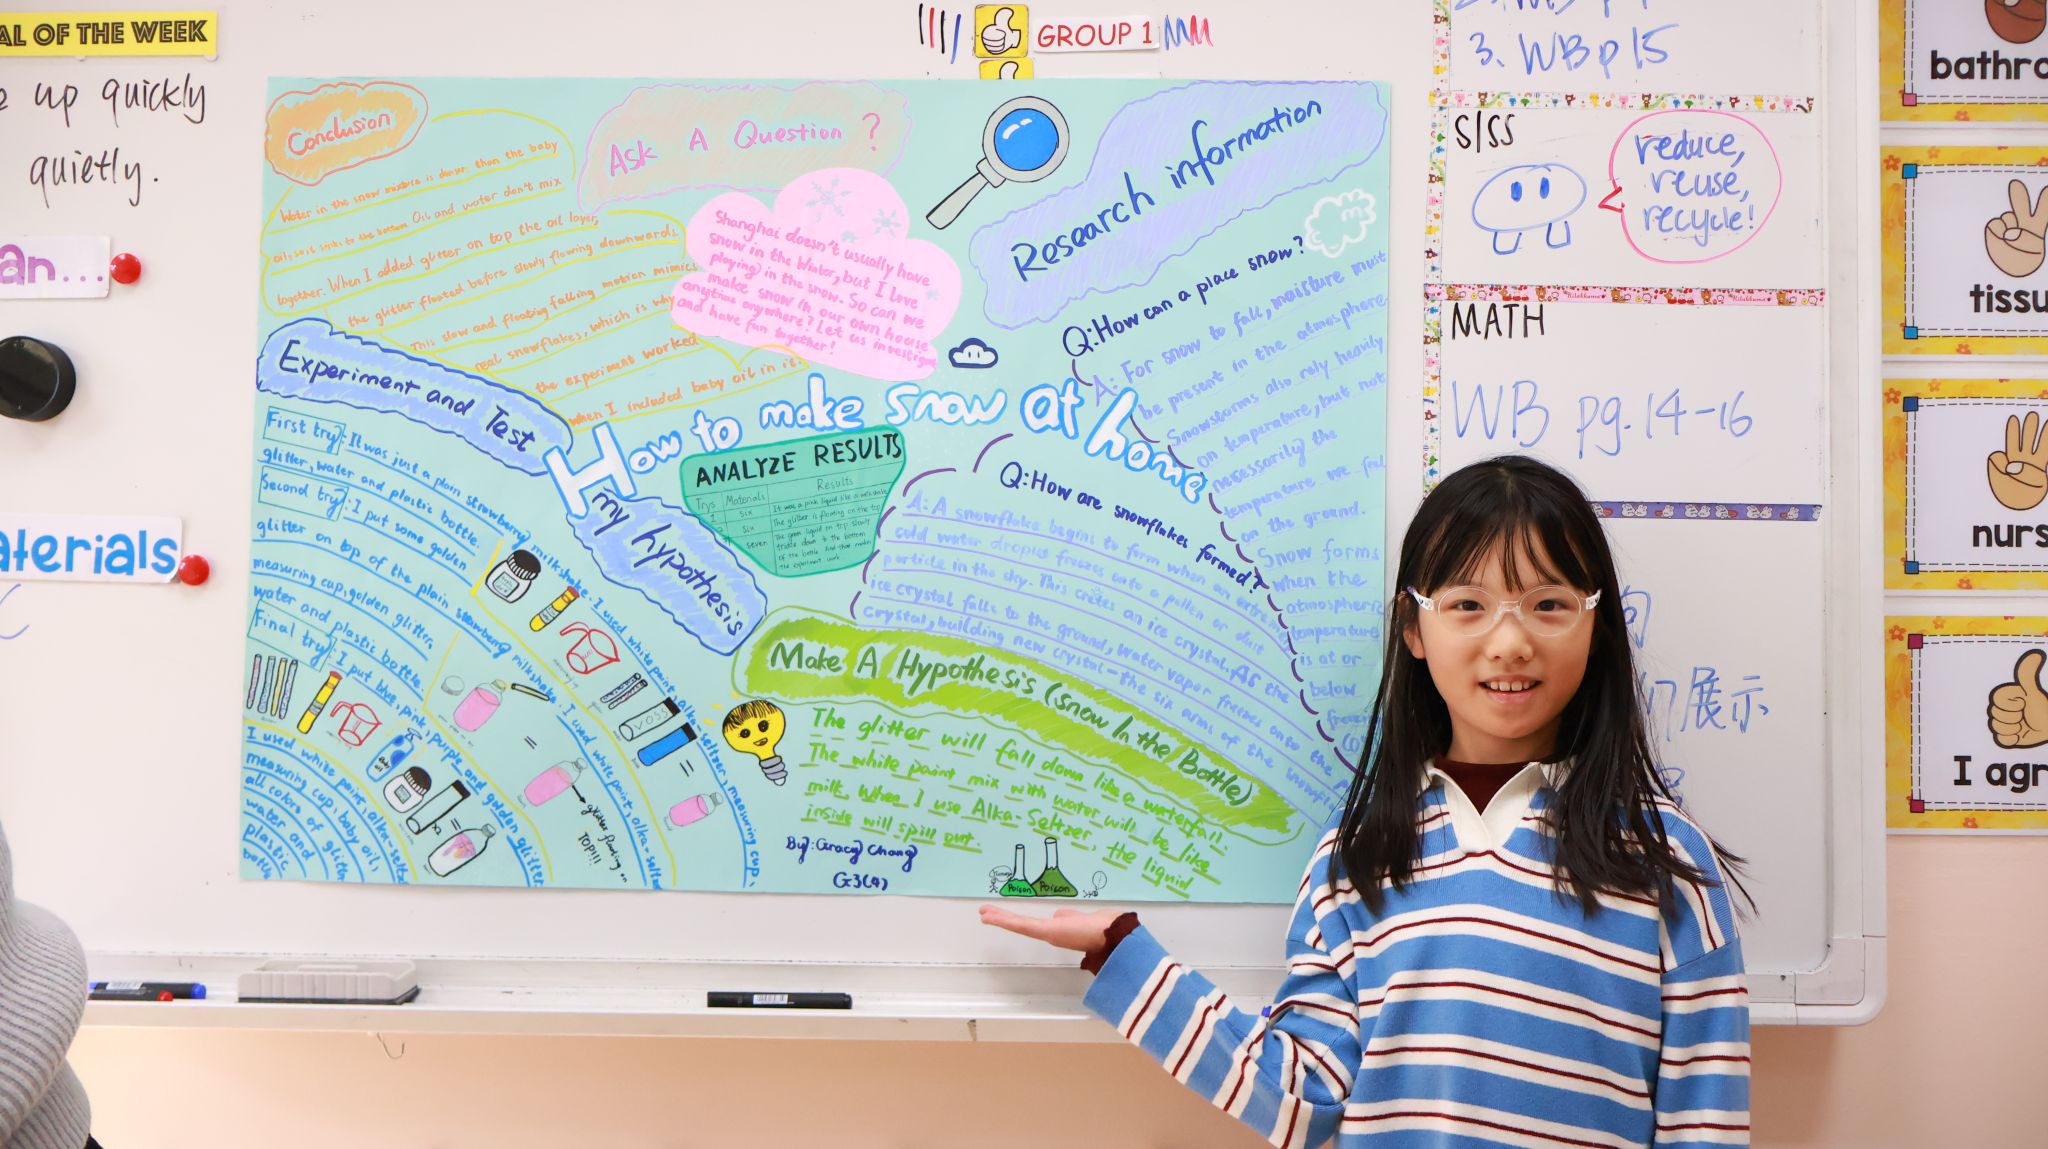 AL OF THE WEEK
e up quickly
quietly.
an...
aterials
GROUP 1
3. WB p 15
S/SS
reduce,
reuse,
recycle!
MATH
WB pg. 14-16
展示
bathro
tissu
nurs
I agr
Conclusion
Water in the snow mixture is denser than the baby
oil, so it sinks to the bottom. Oil and water don't mix
together. When I added glitter on top the oil layer,
the glitter floated before slowly flowing downwards.
This slow and floating falling motion mimics
real snowflakes, which is why
the experiment worked
when I included baby oil in it.
Ask A Question ?
Shanghai doesn't usually have
snow in the Winter, but I love
playing in the snow. So can we
make snow in our own house
anytime anywhere? Let us investigate
and have fun together!
Research information
Q: How can a place snow?
A: For snow to fall, moisture must
be present in the atmosphere
Snowstorms also rely heavily
on temperature, but not
necessarily the
temperature we feel
on the ground.
Snow forms
when the
atmospheric
temperature
is at or
below
Q: How are snowflakes formed?
A: A snowflake begins to form when an extremely
cold water droplet freezes onto a pollen or dust
particle in the sky. This creates an ice crystal. As the
ice crystal falls to the ground, water vapor freezes onto the
crystal, building new crystal - the six arms of the snowfl
How to make snow at home
Experiment and Test
First try: It was just a plain strawberry milkshake. I used white paint, alka seltzer, measuring cup,
glitter, water and plastic bottle.
Second try: I put some golden
glitter on top of the plain strawberry milkshake. I used white paint, alka-seltz
measuring cup, golden glitter,
water and plastic bottle.
Final try: I put blue, pink, purple and golden glitter
I used white paint, alka-seltz
measuring cup, baby oil,
all colors of glitter
water and
plastic
bottle
VOSS
=
=
=
glitter floating on
TOP!!!
my hypothesis
ANALYZE RESULTS
Trys Materials Results
1 six It was a pink liquid like a milkshake
2 six The glitter is floating on the top
seven The green liquid on top slowly
trickle down to the bottom
of the bottle. And that makes
the experiment work
Make A Hypothesis (snow In the Bottle)
The glitter will fall down like a waterfall.
The white paint mix with water will be like
milk. When I use Alka-Seltzer, the liquid
inside will spill out.
By: Gracy Chang
G3(4)
Poison
Poison